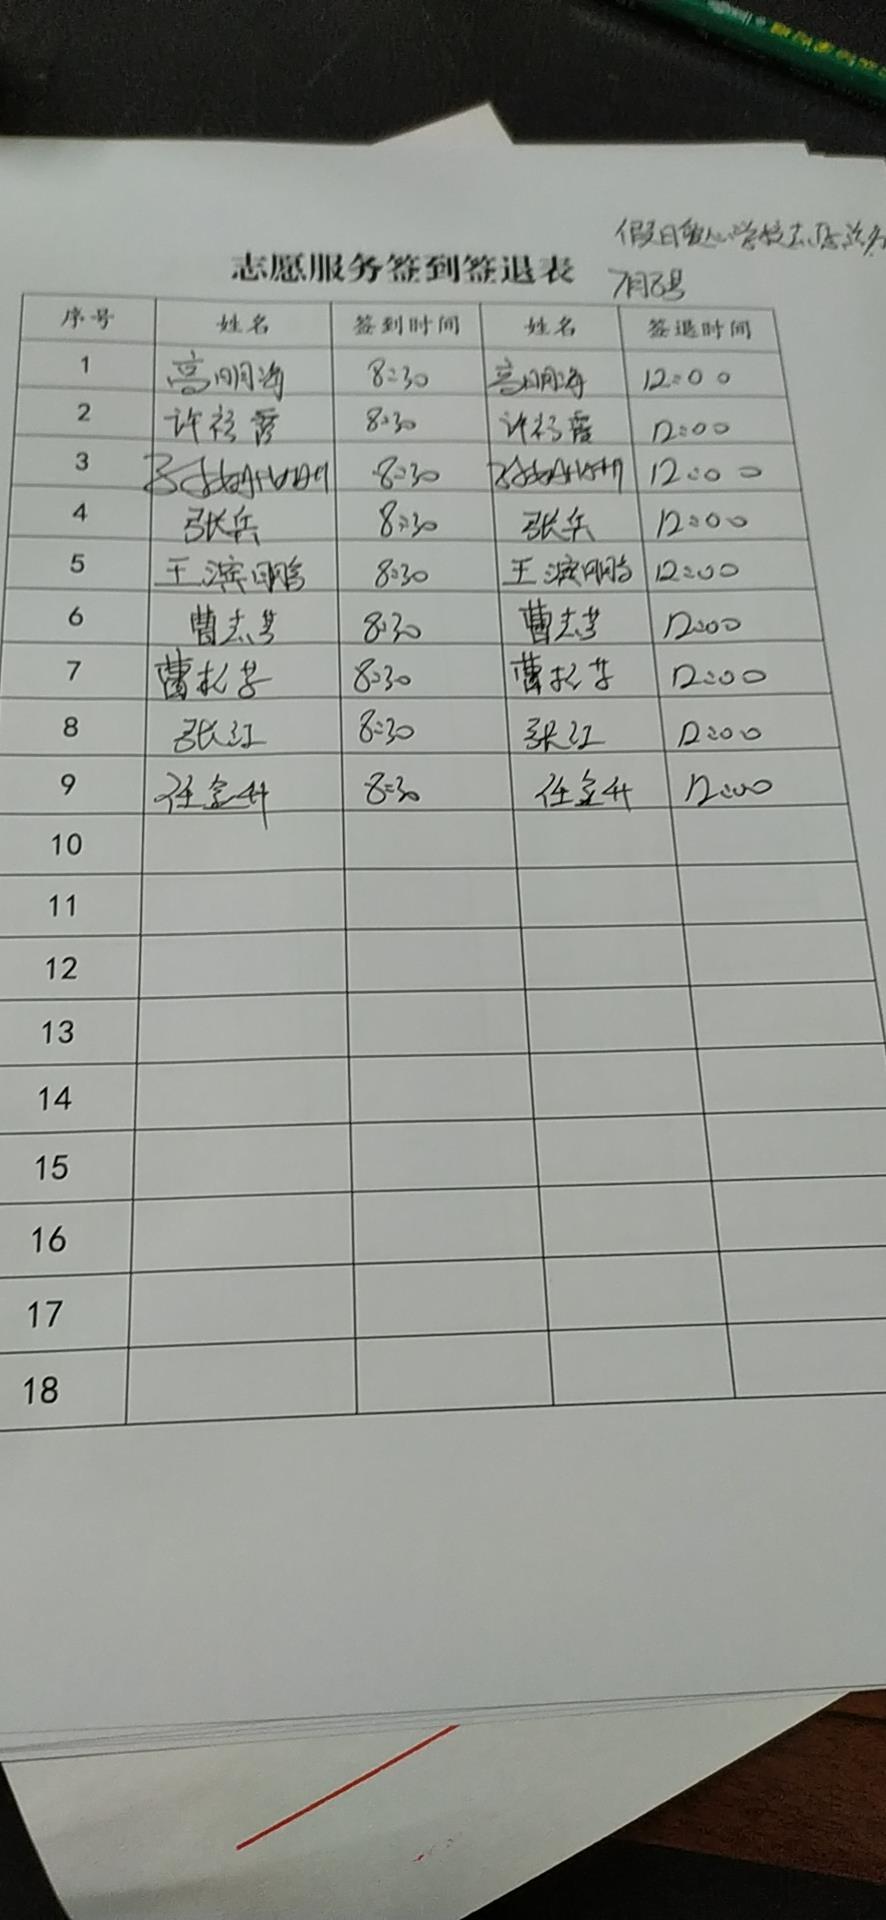 假日爱心学校志愿服务
志愿服务签到签退表
7月8号
序号 姓名 签到时间 姓名 签退时间
1 高明海 8:30 高明海 12:00
2 许衫霞 8:30 许衫霞 12:00
3 8:30 12:00
4 张兵 8:30 张兵 12:00
5 王滨鹏 8:30 王滨鹏 12:00
6 曹志芳 8:30 曹志芳 12:00
7 曹松芬 8:30 曹松芬 12:00
8 张江 8:30 张江 12:00
9 任金升 8:30 任金升 12:00
10
11
12
13
14
15
16
17
18